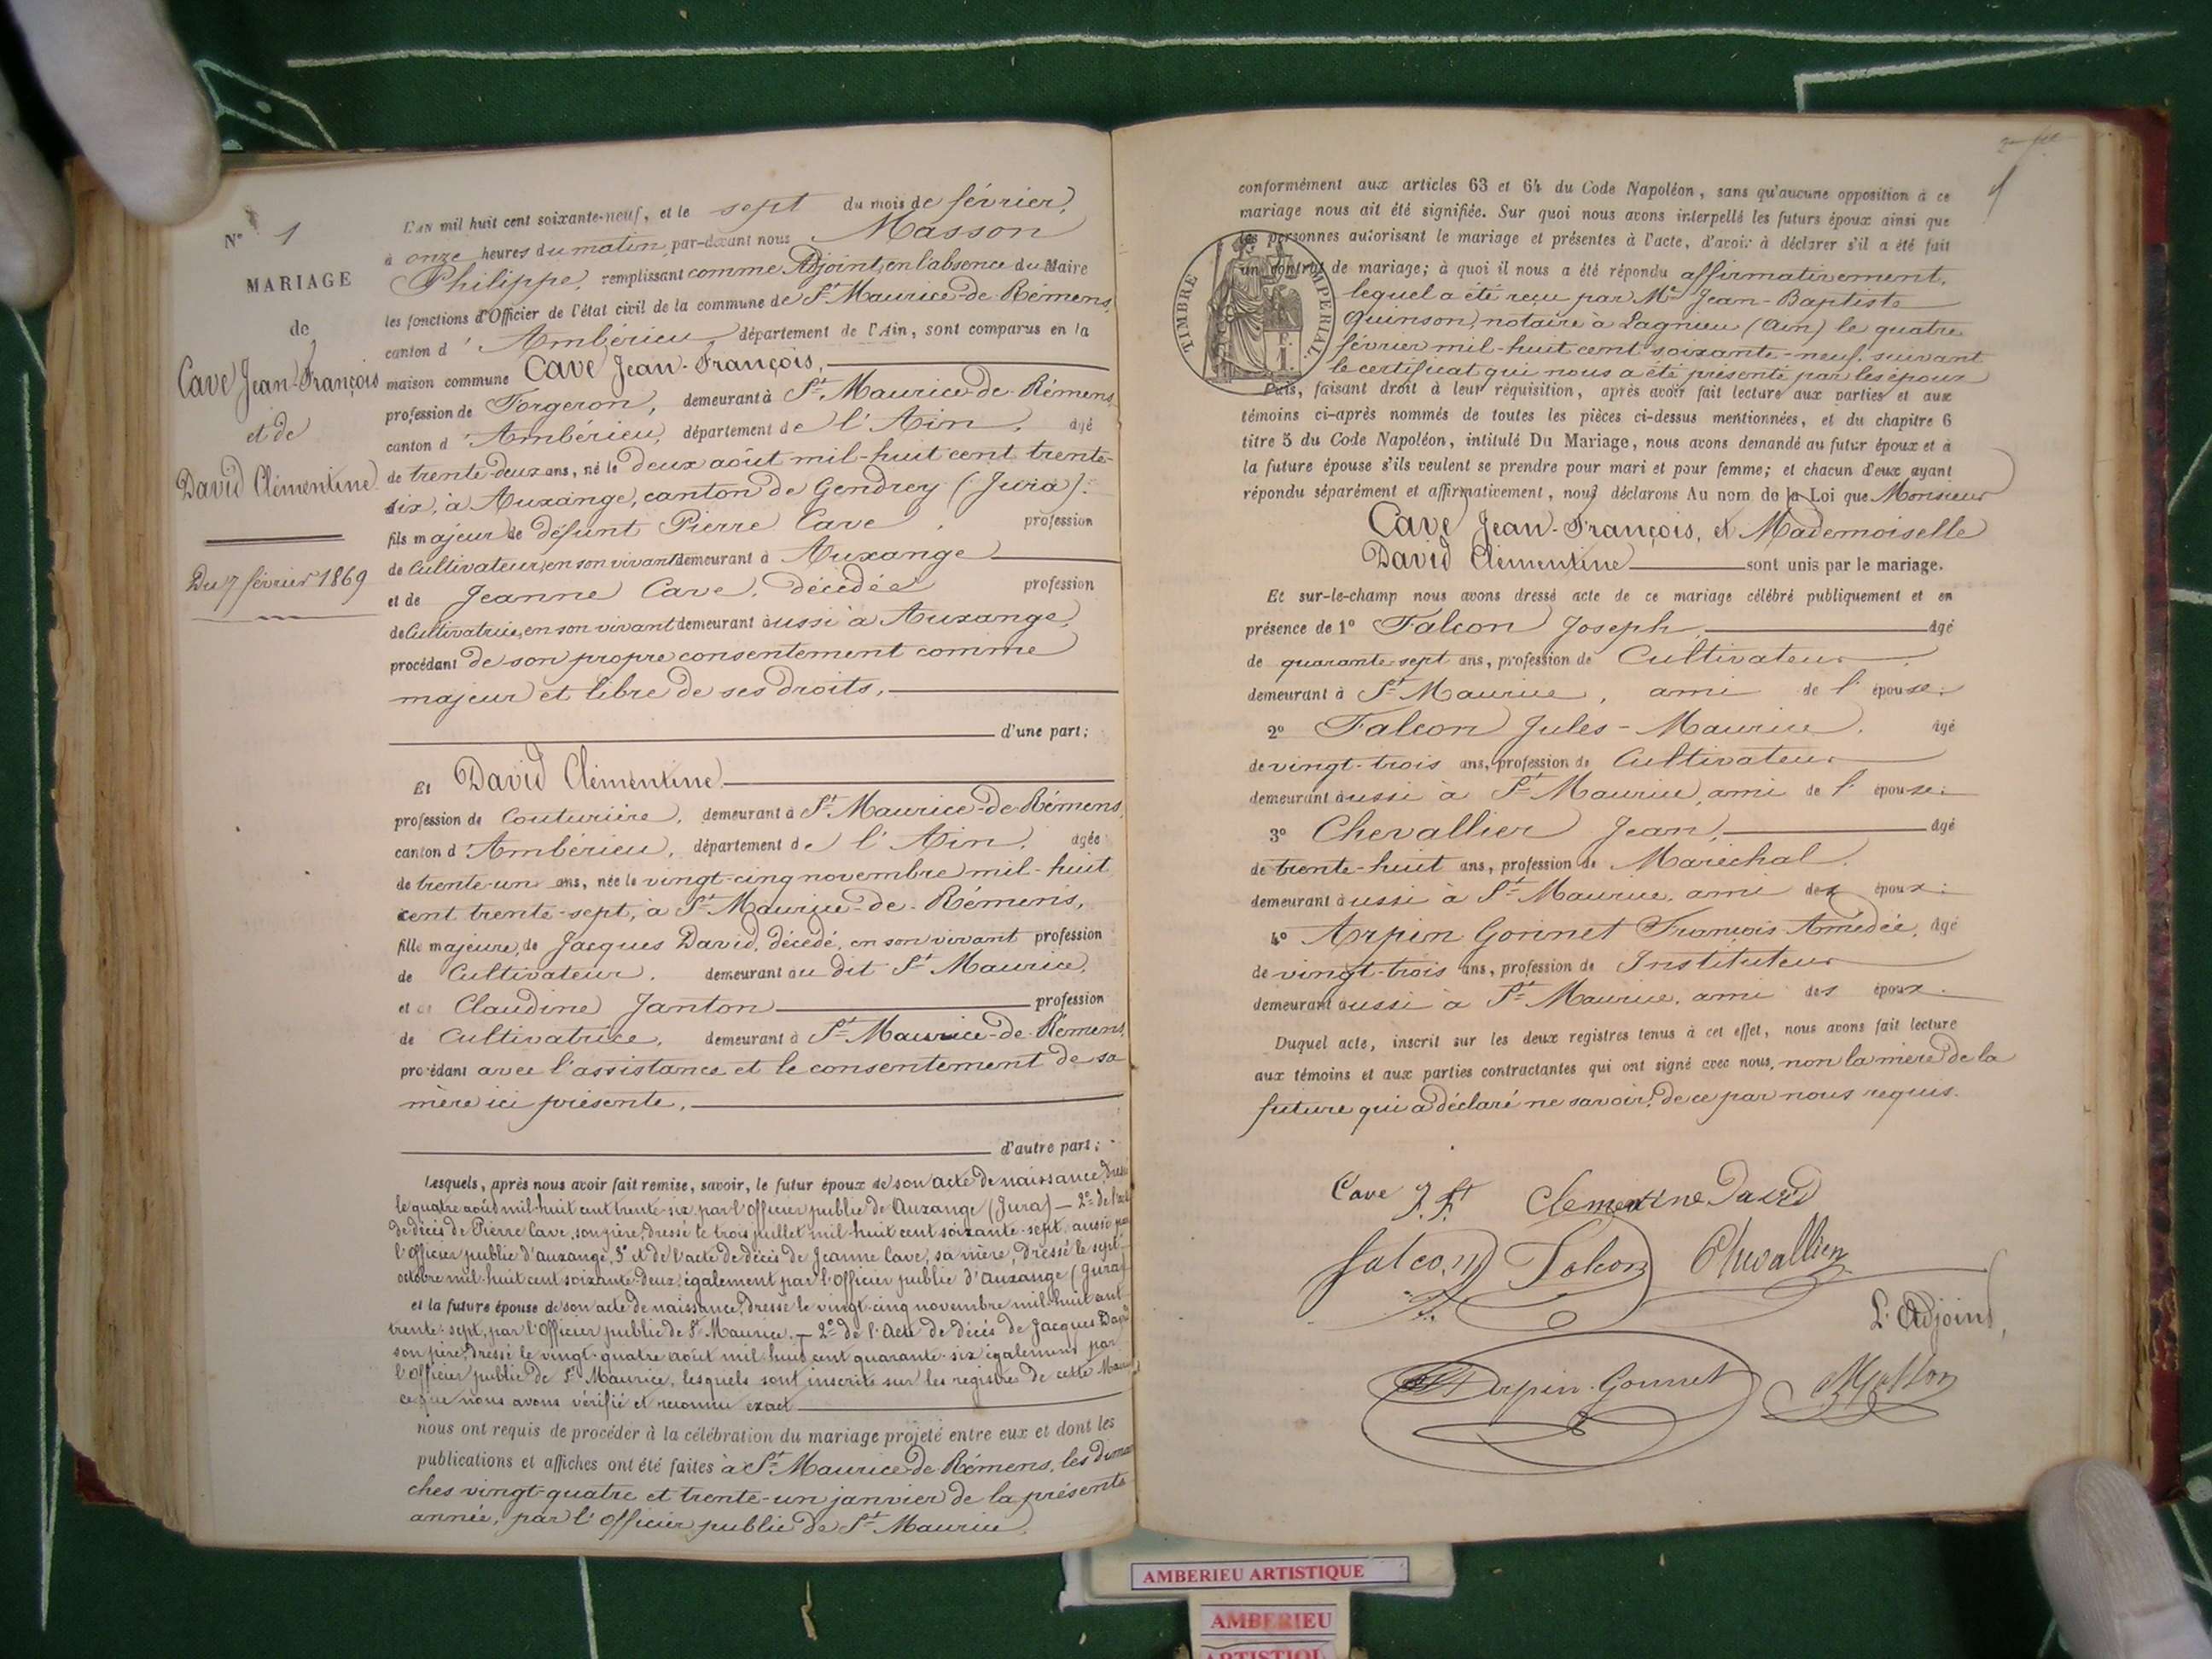 N° 1
MARIAGE
de
Cave Jean-François
et de
David Clémentine
Du 7 février 1869
L'AN mil huit cent soixante-neuf, et le sept du mois de février,
à onze heures du matin, par-devant nous Masson
Philippe, remplissant comme Adjoint, en l'absence du Maire
les fonctions d'Officier de l'état civil de la commune de St Maurice-de-Rémens,
canton d'Ambérieu, département de l'Ain, sont comparus en la
maison commune Cave Jean-François,
profession de Forgeron, demeurant à St Maurice-de-Rémens
canton d'Ambérieu, département de l'Ain, âgé
de trente-deux ans, né le deux août mil-huit cent trente-
six, à Auxange, canton de Gendrey (Jura).
fils majeur de défunt Pierre Cave, profession
de Cultivateur, en son vivant demeurant à Auxange
et de Jeanne Cave, décédée profession
de Cultivatrice, en son vivant demeurant aussi à Auxange,
procédant de son propre consentement comme
majeur et libre de ses droits,
d'une part;
Et David Clémentine
profession de Couturière, demeurant à St Maurice-de-Rémens,
canton d'Ambérieu, département de l'Ain, agée
de trente-un ans, née le vingt-cinq novembre mil-huit
cent trente-sept, à St Maurice-de-Rémens,
fille majeure, de Jacques David, décédé, en son vivant profession
de Cultivateur, demeurant au dit St Maurice,
et de Claudine Janton profession
de Cultivatrice, demeurant à St Maurice-de-Rémens,
procédant avec l'assistance et le consentement de sa
mère ici présente,
d'autre part;
Lesquels, après nous avoir fait remise, savoir, le futur époux de son acte de naissance, dressé
le quatre août mil-huit cent trente-six par l'Officier public de Auxange (Jura) — 2° de l'acte
de décès de Pierre Cave, son père, dressé le trois juillet mil-huit cent soixante-sept, aussi par
l'Officier public d'Auxange, 3° et de l'acte de décès de Jeanne Cave, sa mère, dressé le sept
octobre mil-huit cent soixante-deux, également par l'Officier public d'Auxange (Jura)
et la future épouse de son acte de naissance, dressé le vingt-cinq novembre mil-huit cent
trente-sept, par l'Officier public de St Maurice. — 2° de l'Acte de décès de Jacques David
son père, dressé le vingt-quatre août mil-huit cent quarante-six également par
l'Officier public de St Maurice, lesquels sont inscrits sur les registres de cette
ce que nous avons vérifié et reconnu exact
nous ont requis de procéder à la célébration du mariage projeté entre eux et dont les
publications et affiches ont été faites à St Maurice-de-Rémens, les diman
ches vingt-quatre et trente-un janvier de la présente
année, par l'Officier public de St Maurice,
1
conformément aux articles 63 et 64 du Code Napoléon, sans qu'aucune opposition à ce
mariage nous ait été signifiée. Sur quoi nous avons interpellé les futurs époux ainsi que
les personnes autorisant le mariage et présentes à l'acte, d'avoir à déclarer s'il a été fait
un contrat de mariage; à quoi il nous a été répondu affirmativement,
TIMBRE IMPERIAL.
lequel a été reçu par Me Jean-Baptiste
Quinson, notaire à Lagnieu (Ain) le quatre
février mil-huit cent soixante-neuf, suivant
le certificat qui nous a été présenté par les époux
Puis, faisant droit à leur réquisition, après avoir fait lecture aux parties et aux
témoins ci-après nommés de toutes les pièces ci-dessus mentionnées, et du chapitre 6
titre 5 du Code Napoléon, intitulé Du Mariage, nous avons demandé au futur époux et à
la future épouse s'ils veulent se prendre pour mari et pour femme; et chacun d'eux ayant
répondu séparément et affirmativement, nous déclarons Au nom de la Loi que Monsieur
Cave Jean-François, et Mademoiselle
David Clémentine sont unis par le mariage.
Et sur-le-champ nous avons dressé acte de ce mariage célébré publiquement et en
présence de 1° Falcon Joseph, âgé
de quarante-sept ans, profession de Cultivateur,
demeurant à St Maurice, ami de l'épouse;
2° Falcon Jules-Maurice, âgé
de vingt-trois ans, profession de Cultivateur
demeurant aussi à St Maurice, ami de l'épouse;
3° Chevallier Jean, âgé
de trente-huit ans, profession de Maréchal,
demeurant aussi à St Maurice, ami des époux;
4° Arpin Gonnet François Amédée, âgé
de vingt-trois ans, profession de Instituteur
demeurant aussi à St Maurice, ami des époux.
Duquel acte, inscrit sur les deux registres tenus à cet effet, nous avons fait lecture
aux témoins et aux parties contractantes qui ont signé avec nous, non la mère de la
future qui a déclaré ne savoir, de ce par nous requis.
Cave J. F. Clementine David
falcon Falcon Chevallier
L'Adjoint,
Arpin-Gonnet Masson
AMBERIEU ARTISTIQUE
AMBERIEU
ARTISTIQUE